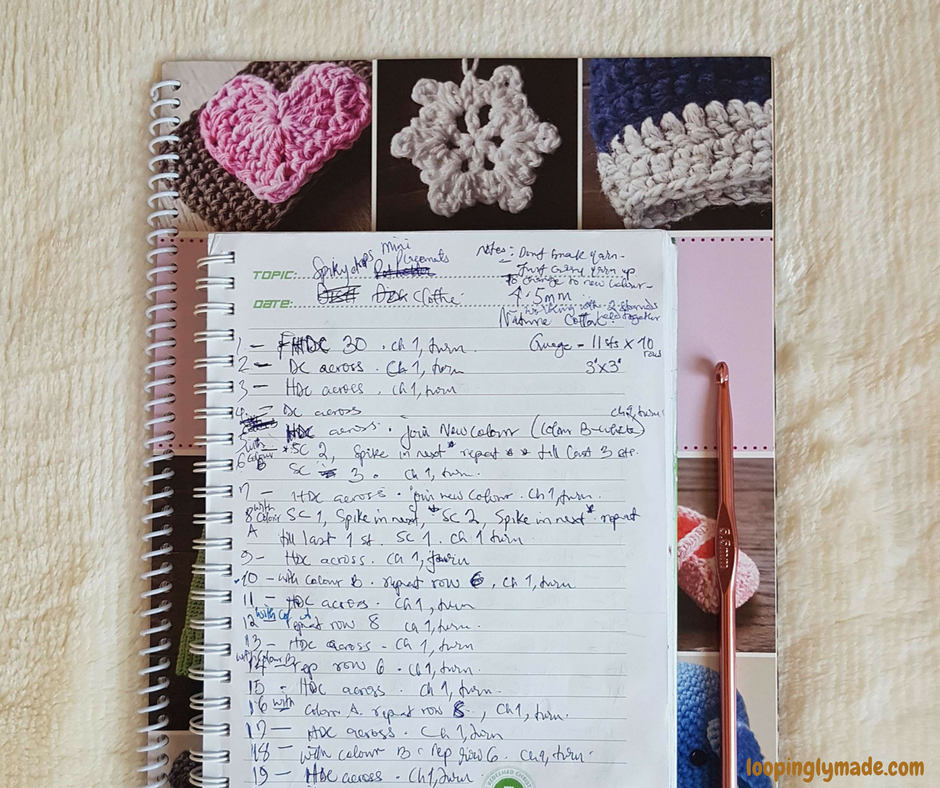 TOPIC: Spikydrops mini
Placemats
DATE: Clothe
Notes :- Dont break yarn -
Just carry yarn up
to change to new colour -
4.5mm
working with 2 strands
held together
Nature Cotton.
1 - FHDC 30 . ch 1, turn.
Guage - 11sts x 10 rows
3" x 3"
2 - DC across . Ch 1, turn
3 - HDC across . ch 1, turn
4 - DC across
ch 1, turn
5 HDC across . Join New Colour (Colour B - white)
6 with Colour B * SC 2, Spike in next * repeat * * till last 3 sts.
SC 3 . ch 1, turn
7 - HDC across . join new colour . Ch 1, turn .
8 with Colour A SC 1, Spike in next, * SC 2, Spike in next * repeat
till last 1 st . SC 1 . ch 1 turn
9 - HDC across . Ch 1, turn
10 - with colour B . repeat row 6, ch 1, turn
11 - HDC across . Ch 1, turn
12 with Col A repeat row 8 ch 1, turn .
13 - HDC across . Ch 1, turn
14 with Colour B rep row 6 . Ch 1, turn .
15 - HDC across . Ch 1, turn .
16 with colour A . repeat row 8 , Ch 1, turn .
17 - HDC across . Ch 1, turn
18 - with colour B - rep row 6 . Ch 1, turn .
19 - HDC across . Ch 1, turn
loopinglymade.com